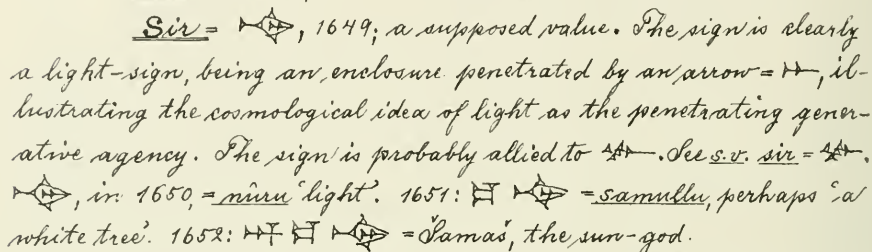 Sir = , 1649; a supposed value. The sign is clearly
a light-sign, being an enclosure penetrated by an arrow = , il-
lustrating the cosmological idea of light as the penetrating gener-
ative agency. The sign is probably allied to . See s.v. sir = .
, in 1650, = nûru 'light'. 1651: = samullu, perhaps 'a
white tree'. 1652: = Šamaš, the sun-god.